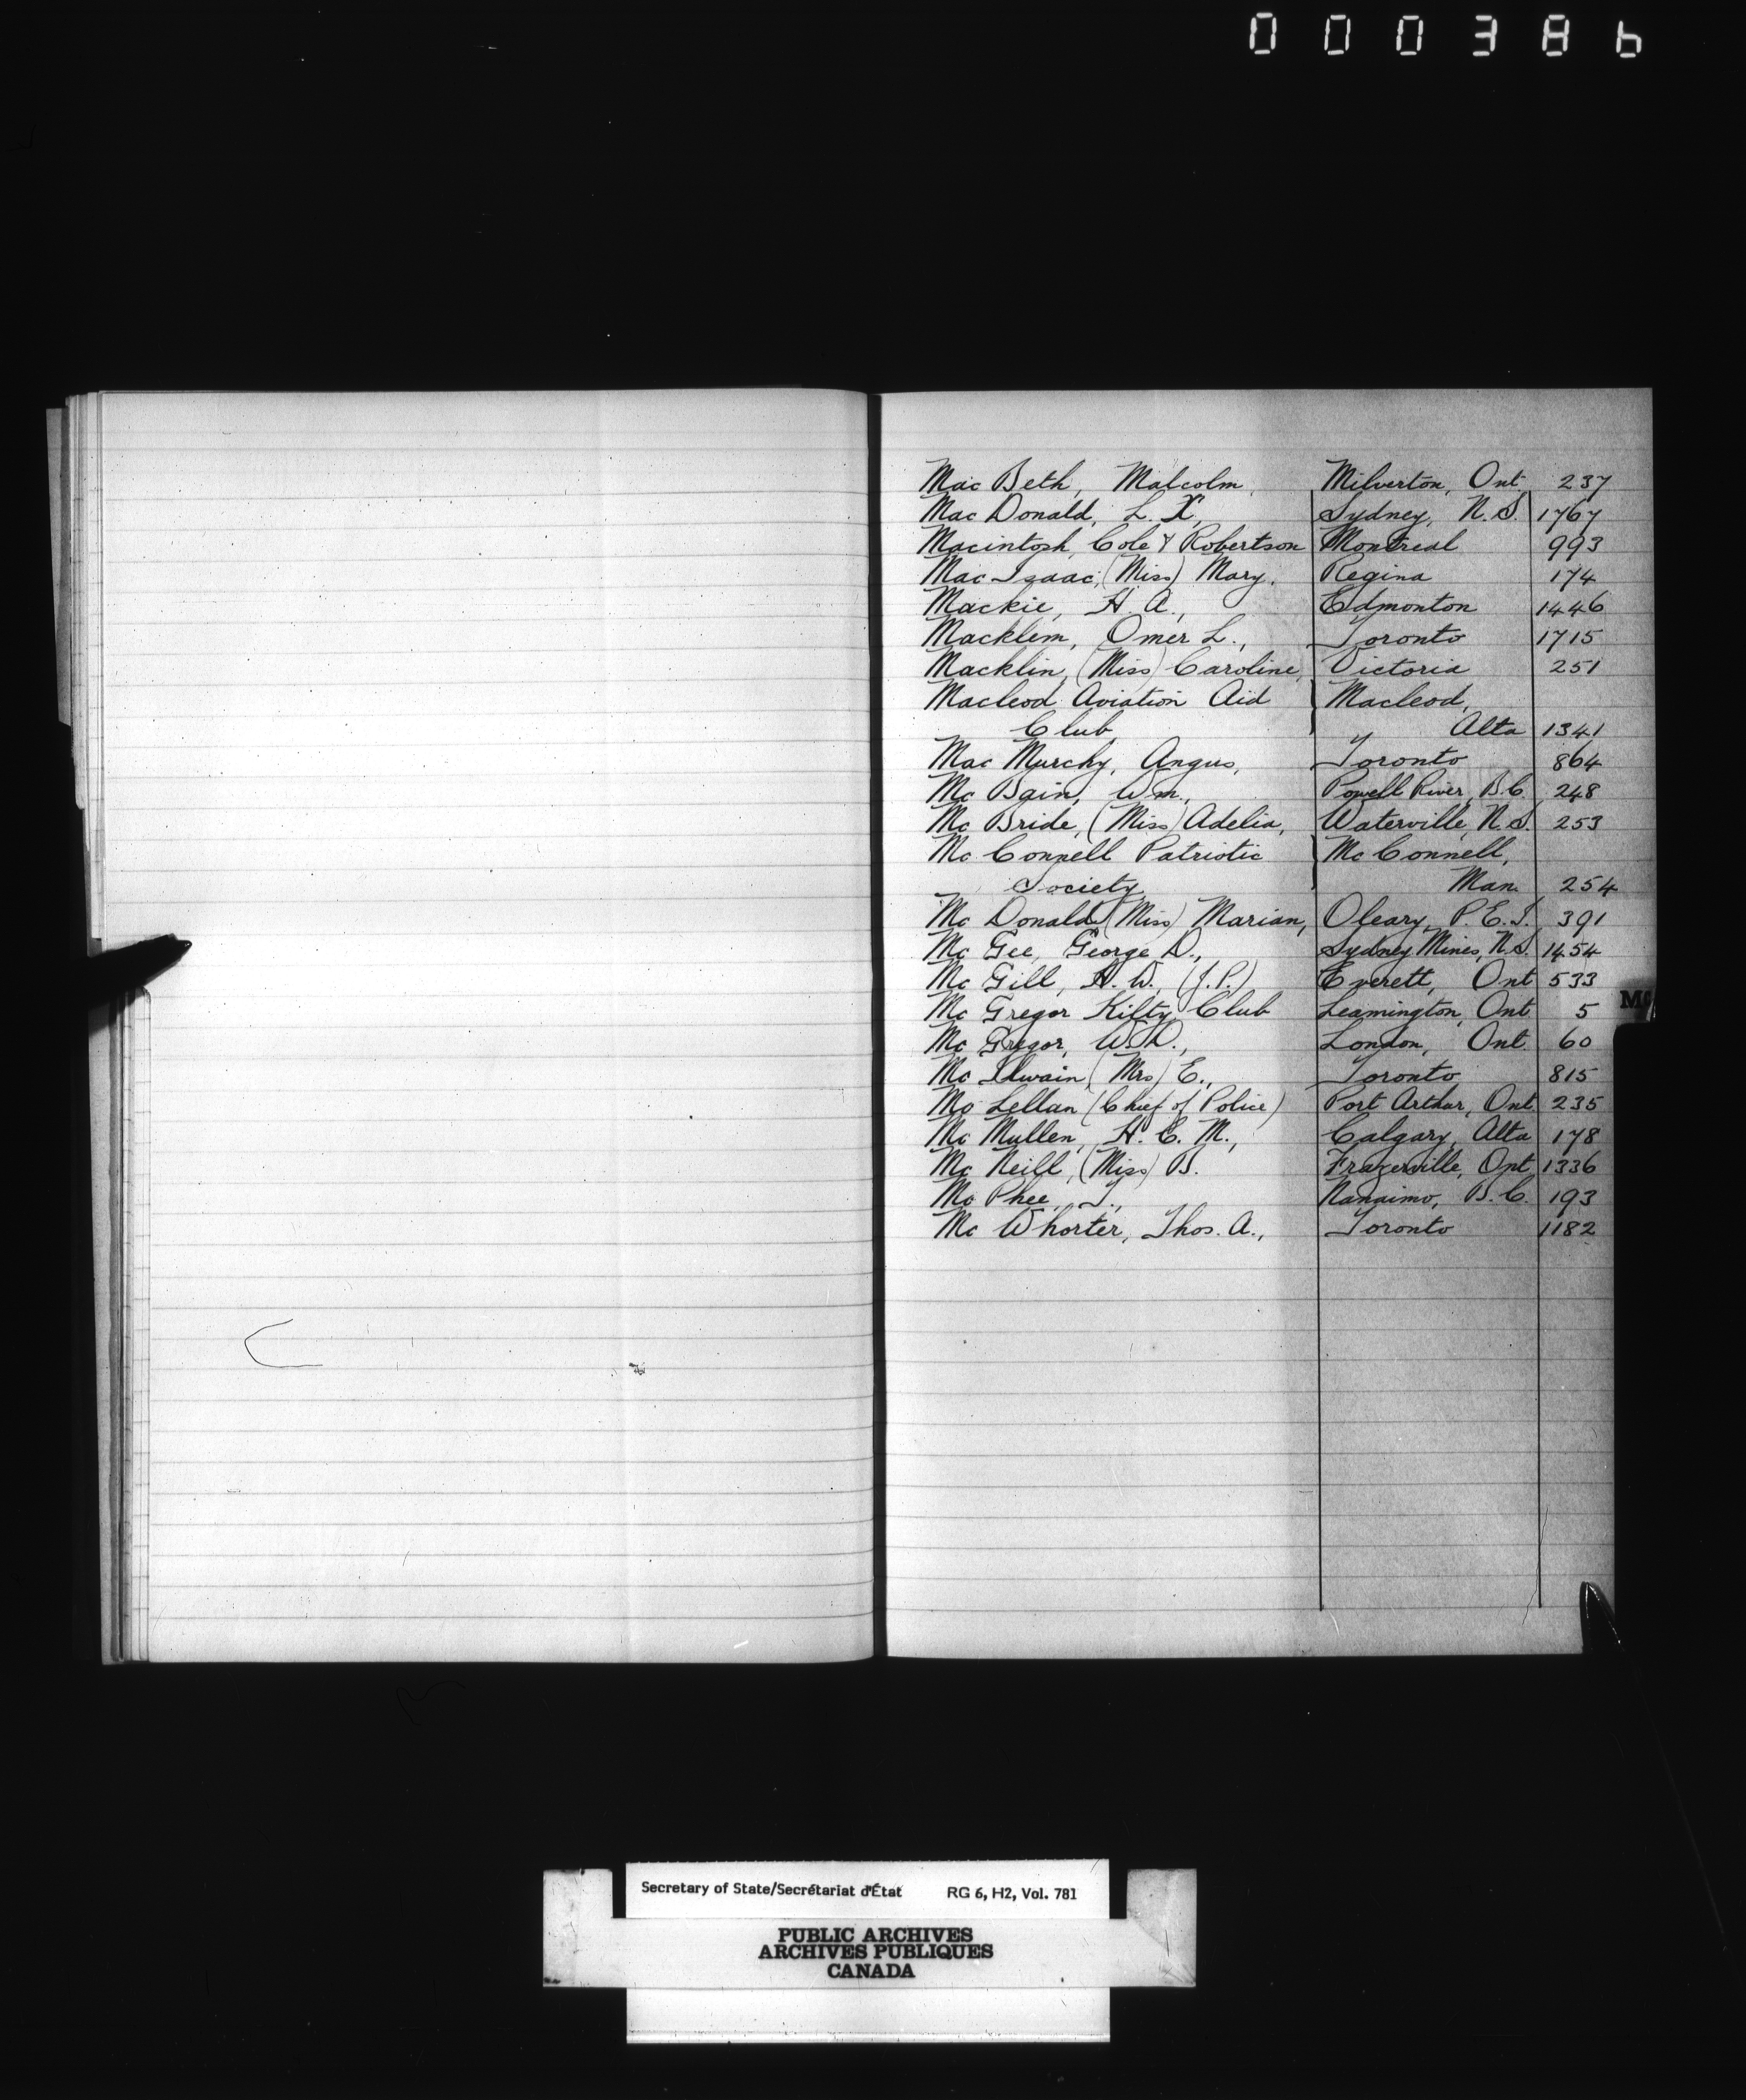 000386
Mac Beth, Malcolm, Milverton, Ont. 237
Mac Donald, L. X, Sydney, N.S. 1767
Macintosh, Cole & Robertson Montreal 993
Mac Isaac, (Miss) Mary, Regina 174
Mackie, H. A., Edmonton 1446
Macklem, Omer L., Toronto 1715
Macklin, (Miss) Caroline, Victoria 251
Macleod Aviation Aid Macleod,
Club, Alta 1341
Mac Murchy, Angus, Toronto 864
Mc Bain, Wm., Powell River, B.C. 248
Mc Bride, (Miss) Adelia, Waterville, N.S. 253
Mc Connell Patriotic Mc Connell,
Society Man. 254
Mc Donald (Miss) Marian, Oleary, P.E.I. 391
Mc Gee, George D., Sydney Mines, N.S. 1454
Mc Gill, H. W., (J.P.) Everett, Ont 533
Mc Gregor Kilty Club Leamington, Ont. 5
Mc Gregor, W. D., London, Ont. 60
Mc Ilwain, (Mrs) E., Toronto 815
Mc Lellan (Chief of Police) Port Arthur, Ont. 235
Mc Mullen, H. C. M., Calgary, Alta 178
Mc Neill, (Miss) B. Frazerville, Ont 1336
Mc Phee, T., Nanaimo, B.C. 193
Mc Whorter, Thos. A., Toronto 1182
Secretary of State/Secrétariat d'État RG 6, H2, Vol. 781
PUBLIC ARCHIVES
ARCHIVES PUBLIQUES
CANADA